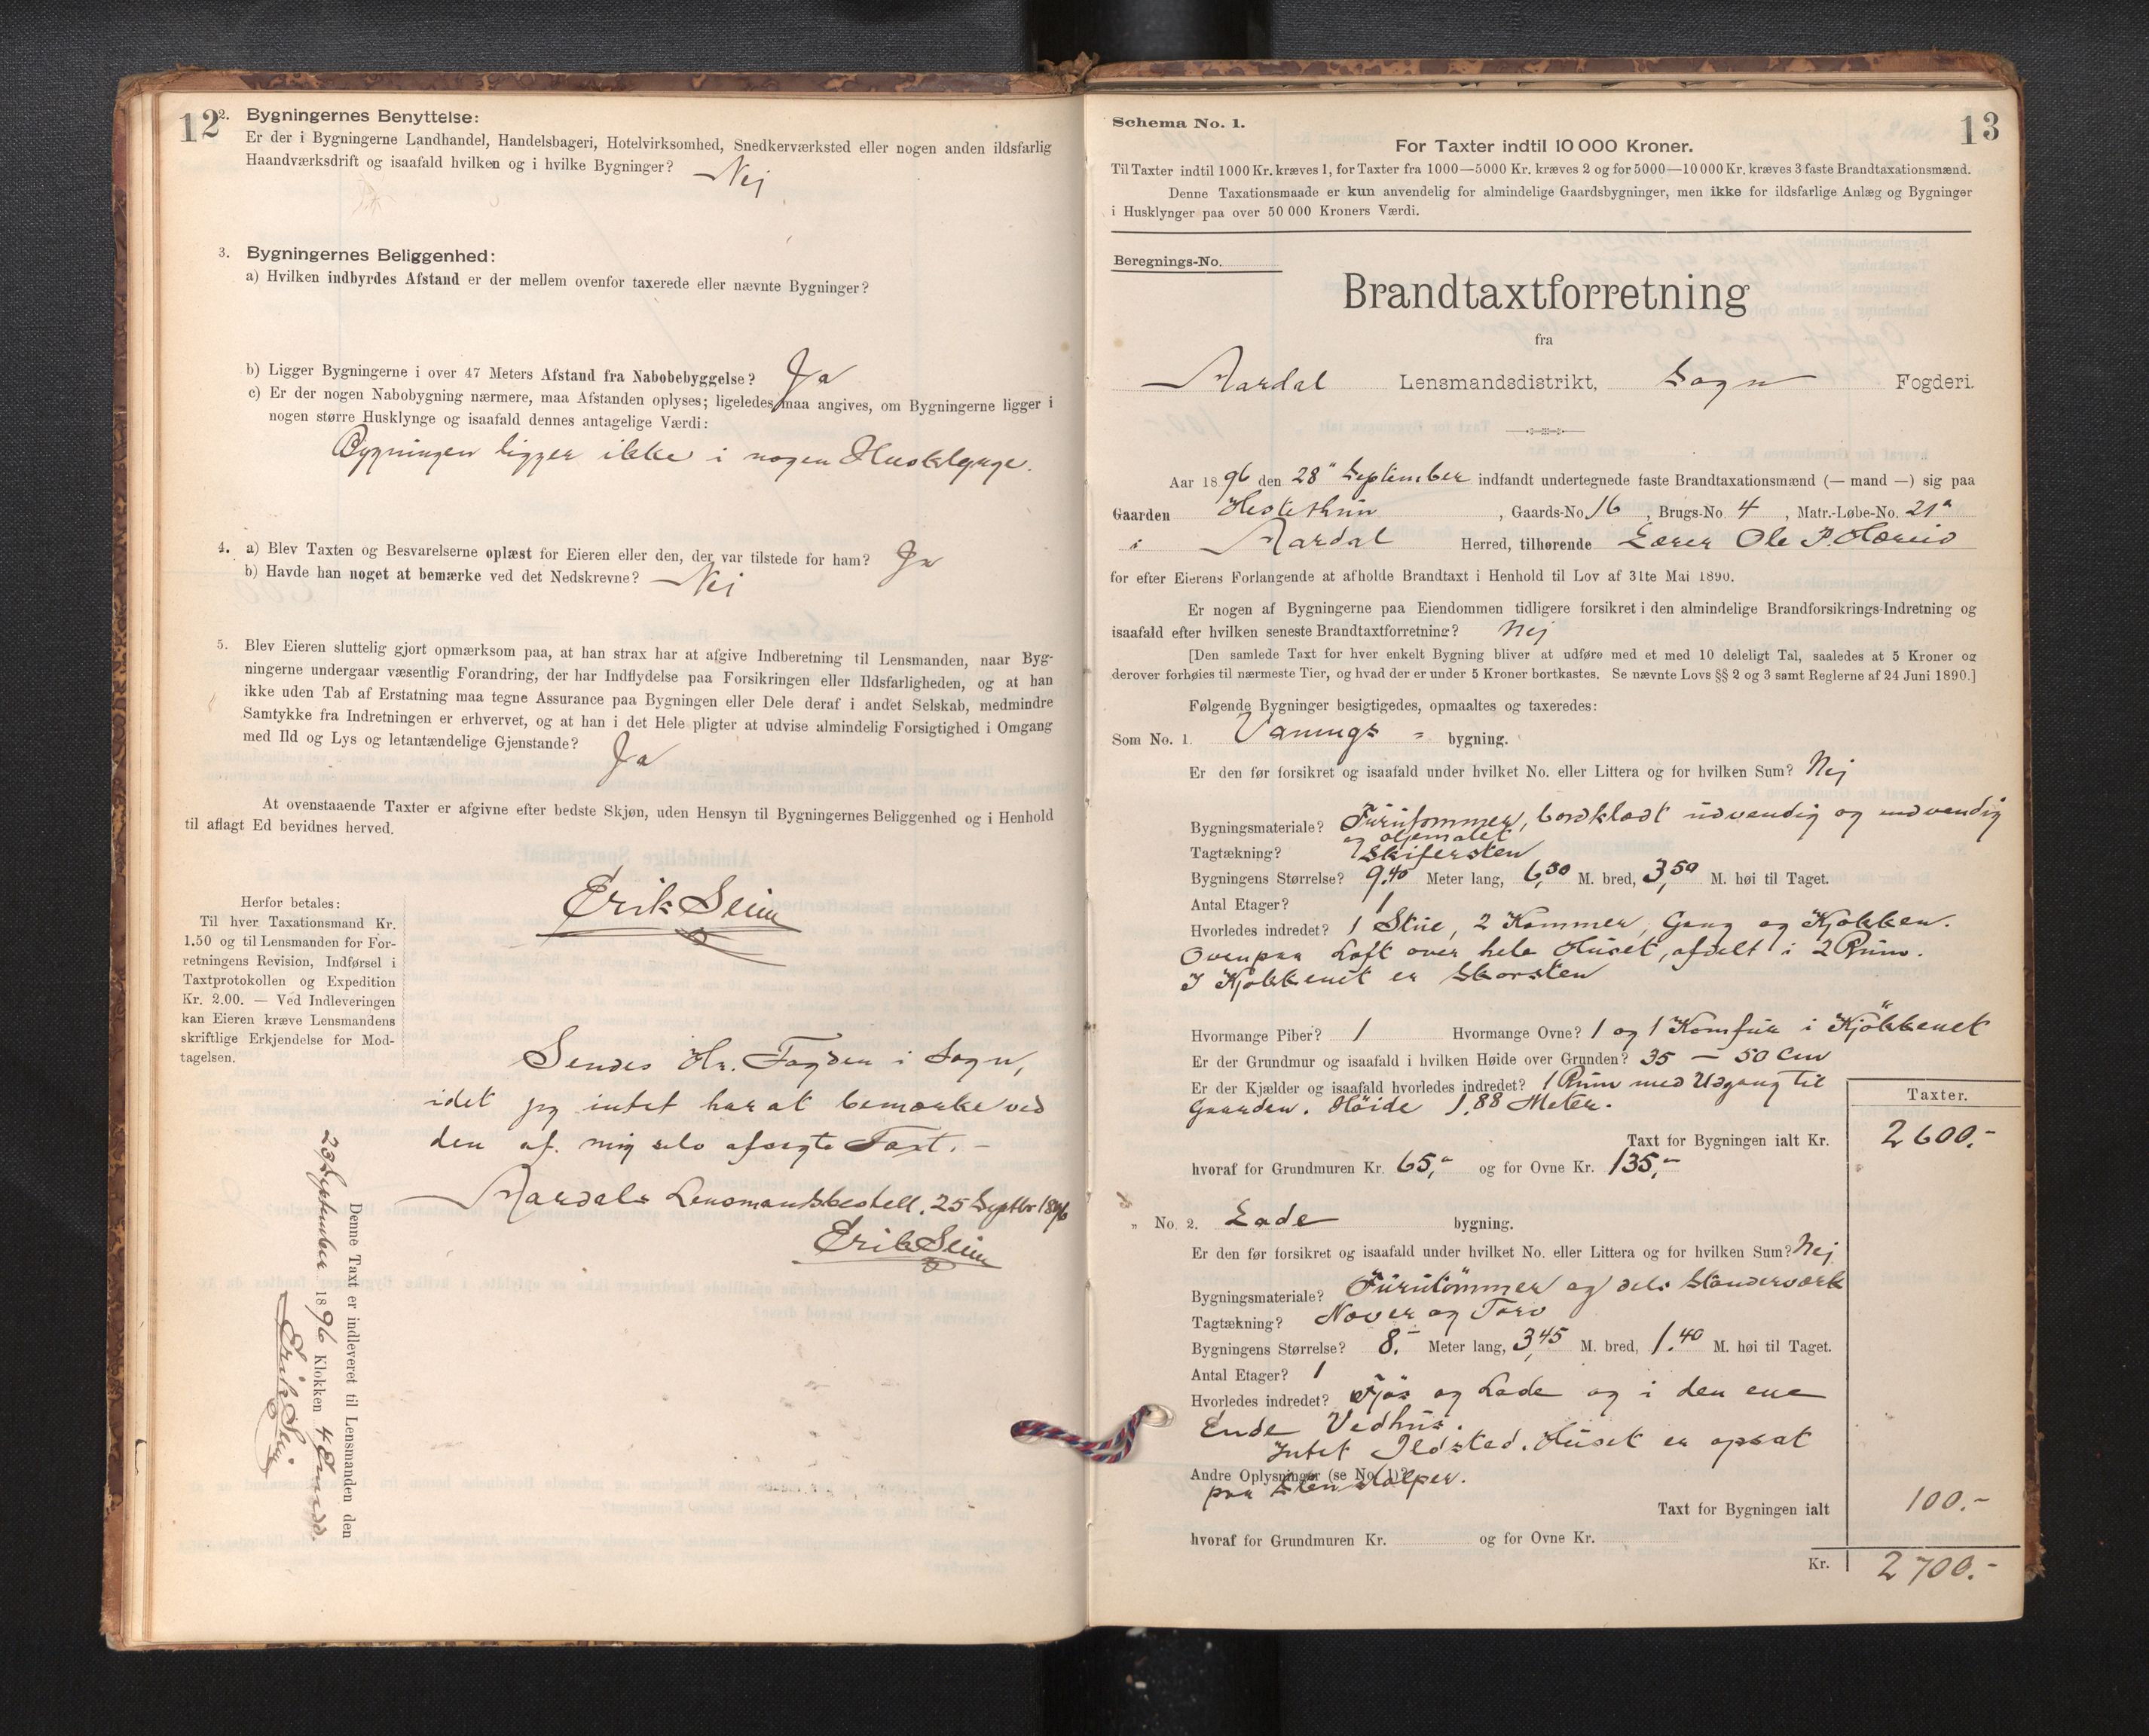 12
2. Bygningernes Benyttelse:
Er der i Bygningerne Landhandel, Handelsbageri, Hotelvirksomhed, Snedkerværksted eller nogen anden ildsfarlig
Haandværksdrift og isaafald hvilken og i hvilke Bygninger? Nej
3. Bygningernes Beliggenhed:
a) Hvilken indbyrdes Afstand er der mellem ovenfor taxerede eller nævnte Bygninger?
b) Ligger Bygningerne i over 47 Meters Afstand fra Nabobebyggelse? Ja
c) Er der nogen Nabobygning nærmere, maa Afstanden oplyses; ligeledes maa angives, om Bygningerne ligger i
nogen større Husklynge og isaafald dennes antagelige Værdi:
Bygningen ligger ikke i nogen Husklynge.
4. a) Blev Taxten og Besvarelserne oplæst for Eieren eller den, der var tilstede for ham? Ja
b) Havde han noget at bemærke ved det Nedskrevne? Nei
5. Blev Eieren sluttelig gjort opmærksom paa, at han strax har at afgive Indberetning til Lensmanden, naar Byg-
ningerne undergaar væsentlig Forandring, der har Indflydelse paa Forsikringen eller Ildsfarligheden, og at han
ikke uden Tab af Erstatning maa tegne Assurance paa Bygningen eller Dele deraf i andet Selskab, medmindre
Samtykke fra Indretningen er erhvervet, og at han i det Hele pligter at udvise almindelig Forsigtighed i Omgang
med Ild og Lys og letantændelige Gjenstande? Ja
At ovenstaaende Taxter er afgivne efter bedste Skjøn, uden Hensyn til Bygningernes Beliggenhed og i Henhold
til aflagt Ed bevidnes herved.
Erik Seim
Herfor betales:
Til hver Taxationsmand Kr.
1.50 og til Lensmanden for For-
retningens Revision, Indførsel i
Taxtprotokollen og Expedition
Kr. 2.00. — Ved Indleveringen
kan Eieren kræve Lensmandens
skriftlige Erkjendelse for Mod-
tagelsen.
Sendes Hr. Fogden i Sogn,
idet jeg intet har at bemærke ved
den af mig selv afsagte Taxt. –
Aardals Lensmandsbestell, 25 Septbr 1896
Erik Seim
Denne Taxt er indleveret til Lensmanden den
23 September 1896 Klokken 4 Emidd.
Erik Seim
13
Schema No. 1.
For Taxter indtil 10 000 Kroner.
Til Taxter indtil 1000 Kr. kræves 1, for Taxter fra 1000—5000 Kr. kræves 2 og for 5000—10 000 Kr. kræves 3 faste Brandtaxationsmænd.
Denne Taxationsmaade er kun anvendelig for almindelige Gaardsbygninger, men ikke for ildsfarlige Anlæg og Bygninger
i Husklynger paa over 50 000 Kroners Værdi.
Beregnings-No.
Brandtaxtforretning
fra
Aardal Lensmandsdistrikt, Sogn Fogderi.
Aar 1896 den 28" September indfandt undertegnede faste Brandtaxationsmænd (— mand —) sig paa
Gaarden Hestethun, Gaards-No. 16, Brugs-No. 4, Matr.-Løbe-No. 21a
i Aardal Herred, tilhørende Lærer Ole P. Hæreid
for efter Eierens Forlangende at afholde Brandtaxt i Henhold til Lov af 31te Mai 1890.
Er nogen af Bygningerne paa Eiendommen tidligere forsikret i den almindelige Brandforsikrings-Indretning og
isaafald efter hvilken seneste Brandtaxtforretning? Nej
[Den samlede Taxt for hver enkelt Bygning bliver at udføre med et med 10 deleligt Tal, saaledes at 5 Kroner og
derover forhøies til nærmeste Tier, og hvad der er under 5 Kroner bortkastes. Se nævnte Lovs §§ 2 og 3 samt Reglerne af 24 Juni 1890.]
Følgende Bygninger besigtigedes, opmaaltes og taxeredes:
Som No. 1. Vanings = bygning.
Er den før forsikret og isaafald under hvilket No. eller Littera og for hvilken Sum? Nej
Bygningsmateriale? Furutømmer, bordklædt udvendig og indvendig
og oljemalet
Tagtækning? Skifersten
Bygningens Størrelse? 9.40 Meter lang, 6,50 M. bred, 3,50 M. høi til Taget.
Antal Etager? 1
Hvorledes indredet? 1 Stue, 2 Kammer, Gang og Kjøkken.
Ovenpaa Loft over hele Huset, afdelt i 2 Rum.
I Kjøkkenet er Skorsten
Hvormange Piber? 1 Hvormange Ovne? 1 og 1 Komfur i Kjökkenet
Er der Grundmur og isaafald i hvilken Høide over Grunden? 35 – 50 cm
Er der Kjælder og isaafald hvorledes indredet? 1 Rum med Udgang til
Gaarden. Höide 1,88 Meter.
Taxter.
Taxt for Bygningen ialt Kr. 2600.-
hvoraf for Grundmuren Kr. 65,- og for Ovne Kr. 135,-
„ No. 2. Lade bygning.
Er den før forsikret og isaafald under hvilket No. eller Littera og for hvilken Sum? Nej
Bygningsmateriale? Furutömmer og dels Standerværk
Tagtækning? Næver og Torv
Bygningens Størrelse? 8.- Meter lang, 3,45 M. bred, 1.40 M. høi til Taget.
Antal Etager? 1
Hvorledes indredet? Fjøs og Lade og i den ene
Ende Vedhus.
Intet Ildsted. Huset er opsat
Andre Oplysninger (se No. 1)?
paa Stenstolper.
Taxt for Bygningen ialt 100.-
hvoraf for Grundmuren Kr. og for Ovne Kr.
Kr. 2700.-